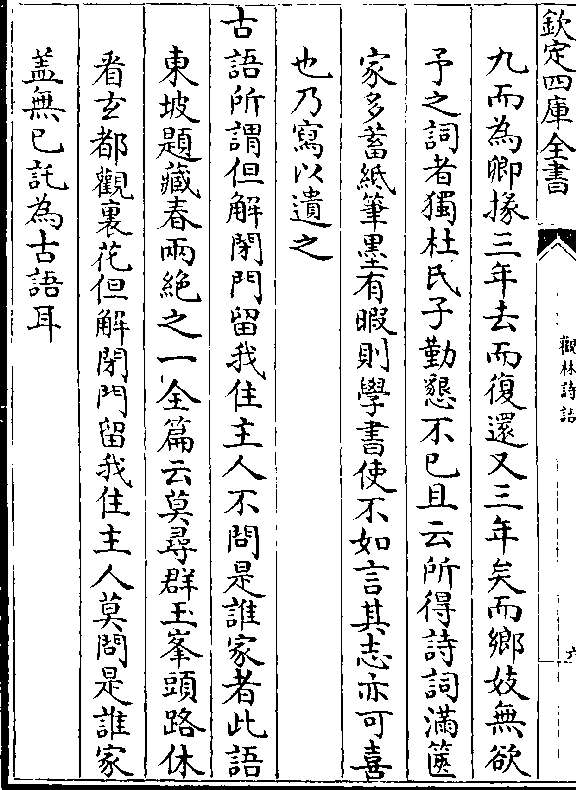 欽定四庫全書
觀林詩話
六
九而為鄉掾三年去而復還又三年矣而鄉妓無欲
予之詞者獨杜氏子勤懇不已且云所得詩詞滿篋
家多蓄紙筆墨有暇則學書使不如言其志亦可喜
也乃寫以遺之
古語所謂但解閉門留我住主人不問是誰家者此語
東坡題藏春兩絶之一全篇云莫尋群玉峯頭路休
㸔玄都觀裏花但解閉門留我住主人莫問是誰家
盖無已託為古語耳